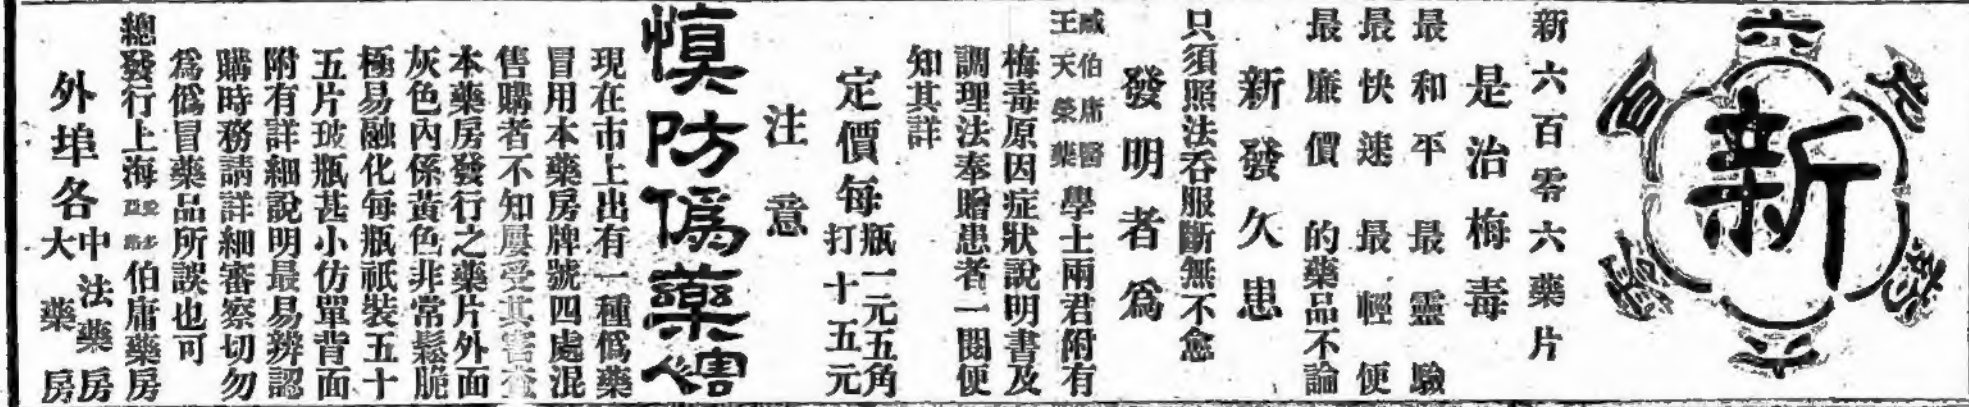 新
六百零六藥片
新六百零六藥片
是治梅毒
最和平 最靈驗
最快速 最輕便
最廉價 的藥品不論
新發久患
只須照法吞服斷無不愈
發明者爲
臧伯庸醫
王天榮藥
學士兩君附有
梅毒原因症狀說明書及
調理法奉贈患者一閱便
知其詳
定價每
瓶一元五角
打十五元
注意
慎防僞藥害人
現在市上出有一種僞藥
冒用本藥房牌號四處混
售購者不知屢受其害查
本藥房發行之藥片外面
灰色內係黃色非常鬆脆
極易融化每瓶祇裝五十
五片玻瓶甚小仿單背面
附有詳細說明最易辨認
購時務請詳細審察切勿
爲僞冒藥品所誤也可
總發行上海
伯庸藥房
外埠各
中法藥房
大藥房